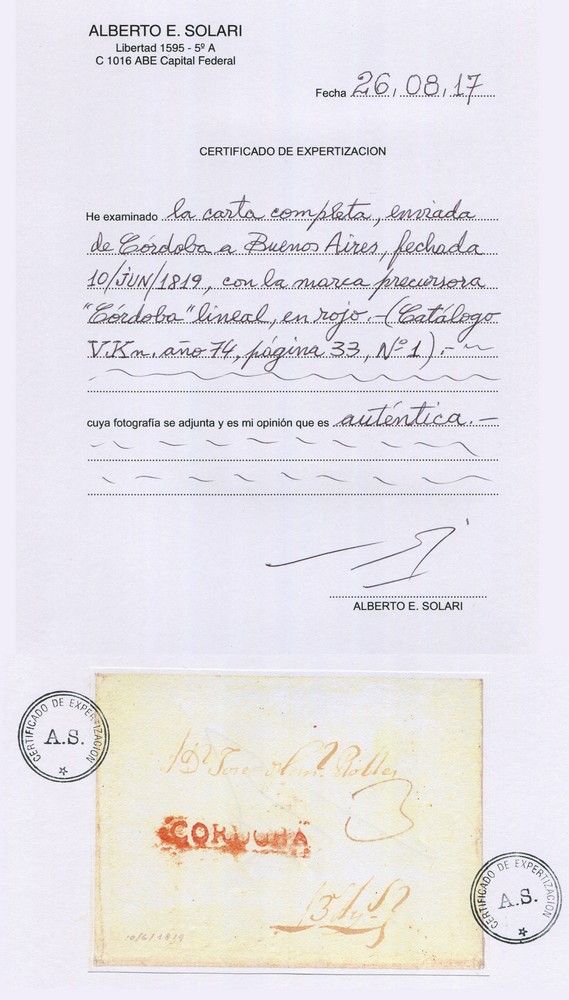 ALBERTO E. SOLARI
Libertad 1595 - 5º A
C 1016 ABE Capital Federal
Fecha 26, 08, 17
CERTIFICADO DE EXPERTIZACION
He examinado la carta completa, enviada
de Córdoba a Buenos Aires, fechada
10/JUN/1819, con la marca precursora
"Córdoba" lineal, en rojo.-(Catálogo
V.Kn. año 74, página 33, Nº 1).-
cuya fotografía se adjunta y es mi opinión que es auténtica.-
ALBERTO E. SOLARI
CERTIFICADO DE EXPERTIZACION
A.S.
Dn Jose
3
CORDOBA
10/6/1819
CERTIFICADO DE EXPERTIZACION
A.S.